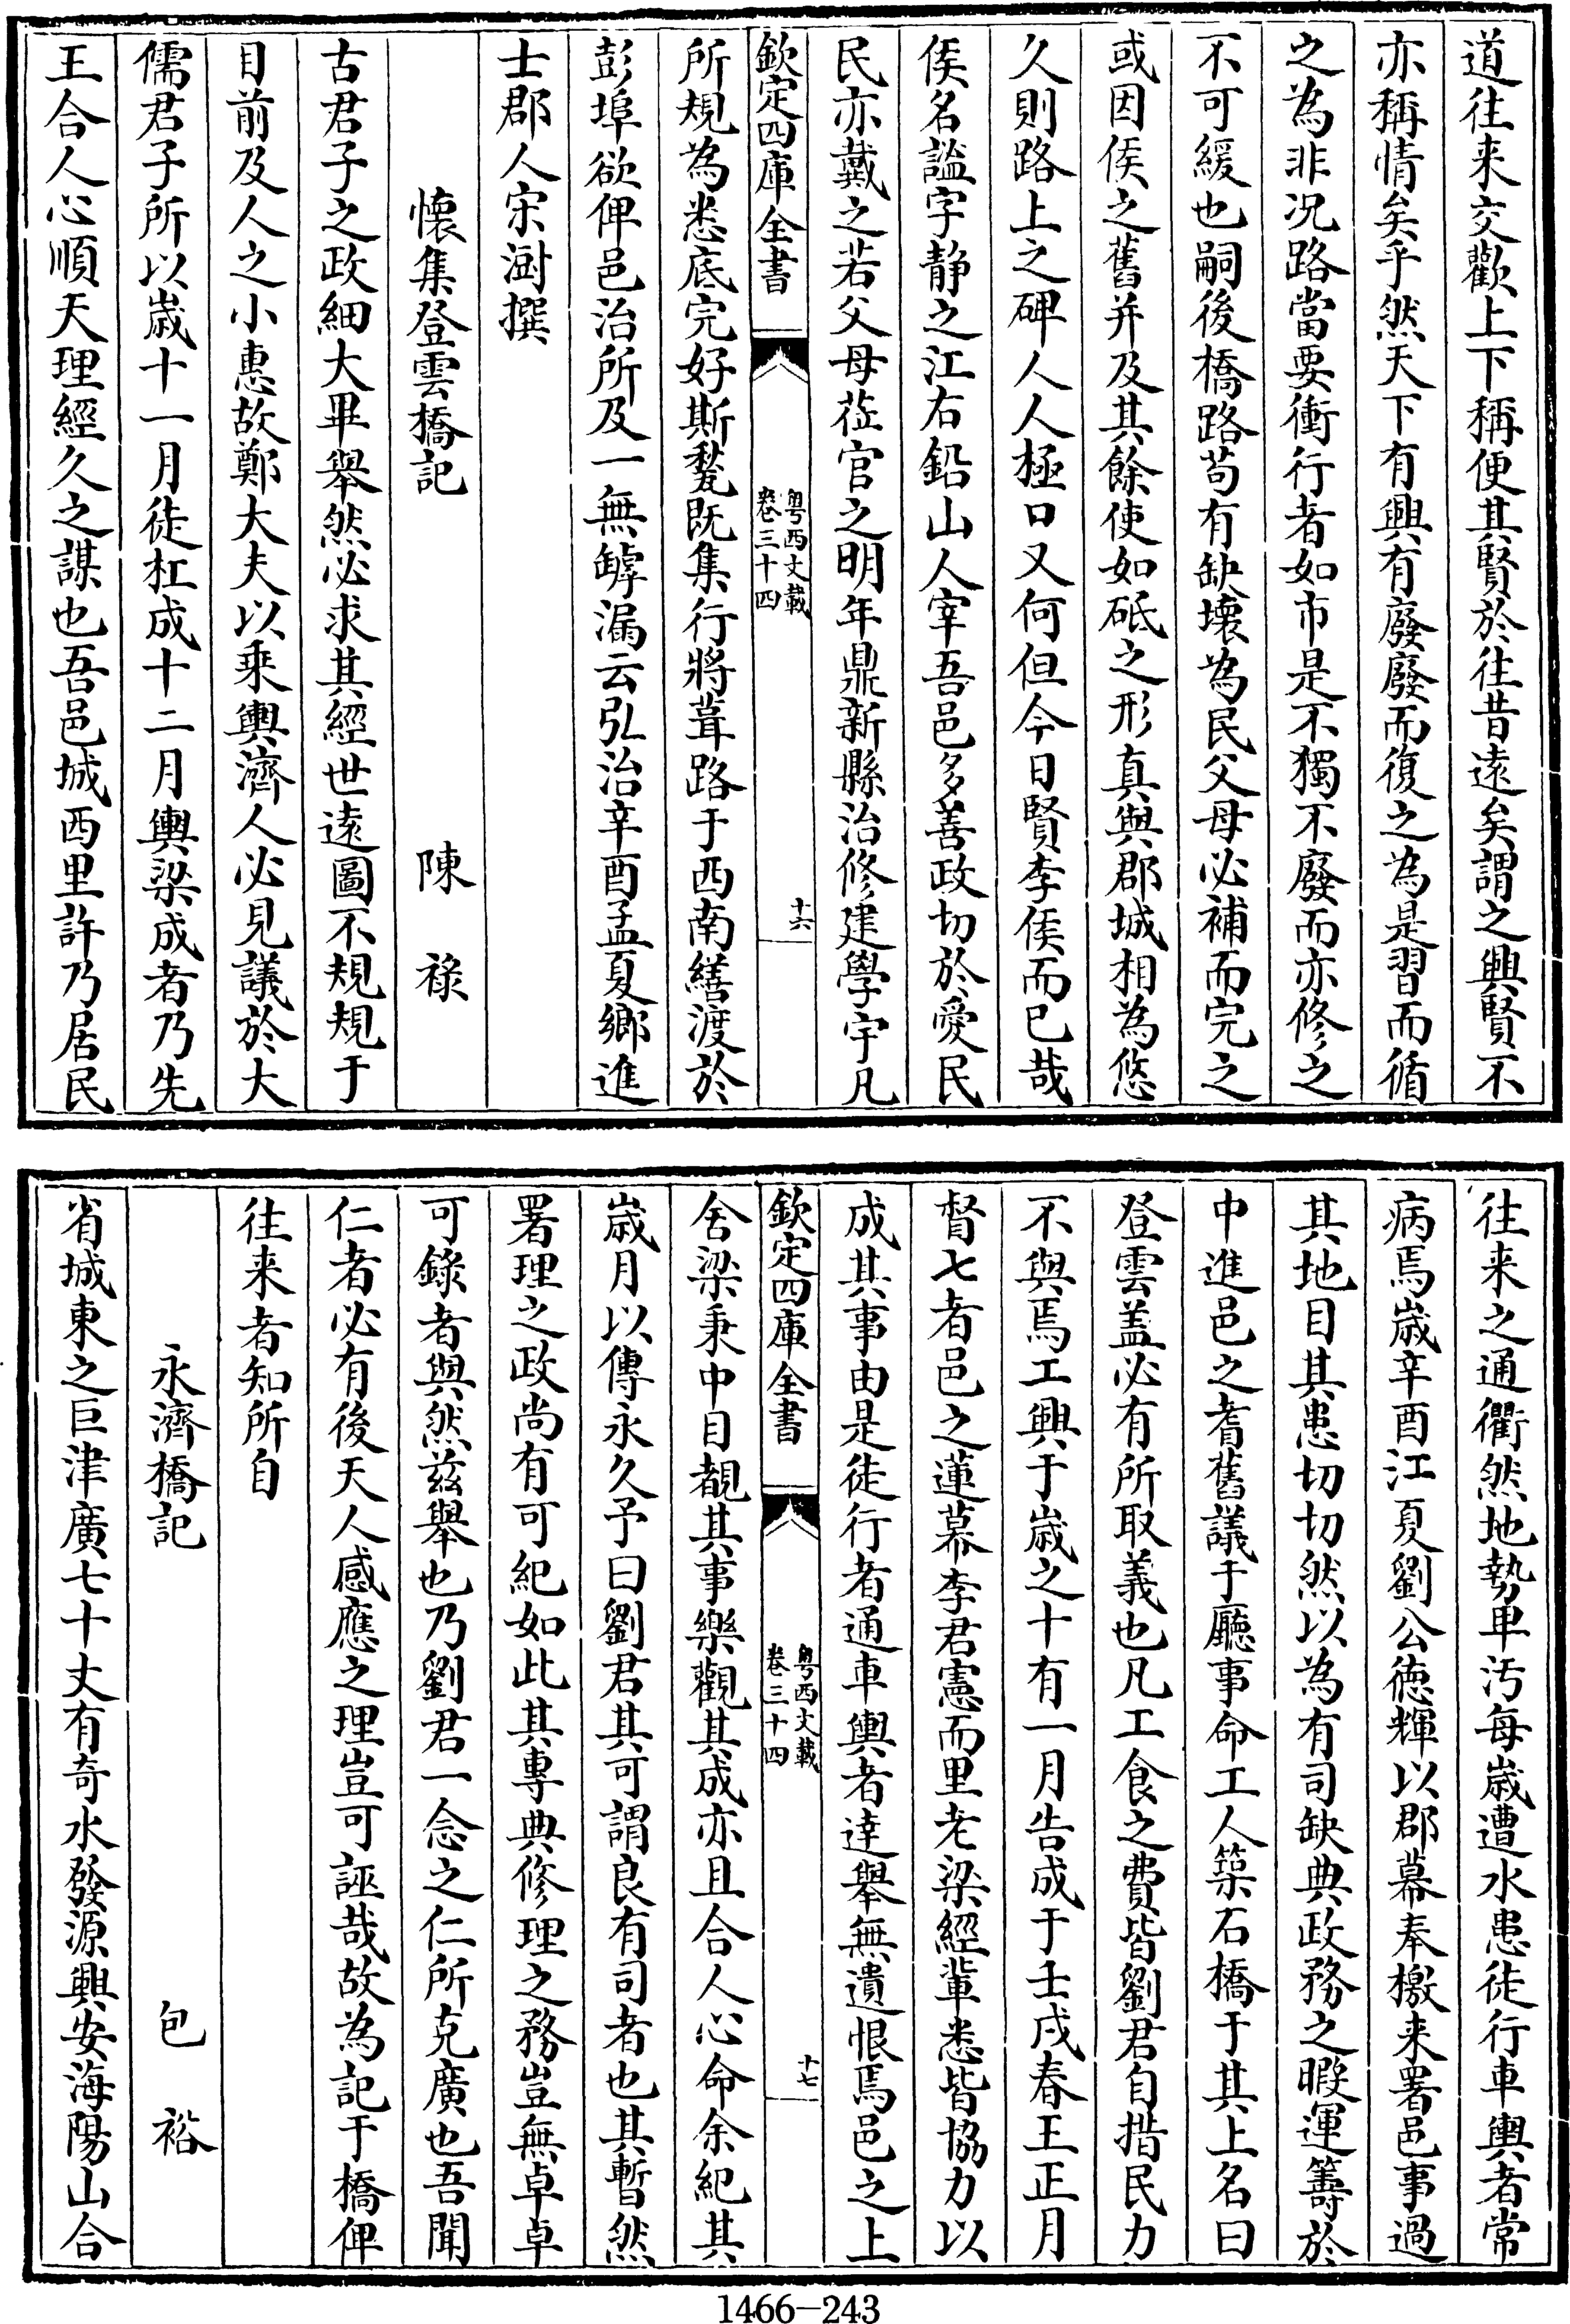 道往来交歡上下稱便其賢於往昔遠矣謂之興賢不
亦稱情矣乎然天下有興有廢廢而復之為是習而循
之為非况路當要衝行者如市是不獨不廢而亦修之
不可緩也嗣後橋路苟有缺壞為民父母必補而完之
或因侯之舊并及其餘使如砥之形真與郡城相為悠
久則路上之碑人人極口又何但今日賢李侯而已哉
侯名謐字静之江右鉛山人宰吾邑多善政切於愛民
民亦戴之若父母莅官之明年鼎新縣治修建學宇凡
欽定四庫全書
粤西文載
卷三十四
十六
所規為悉底完好斯甃既集行將葺路于西南繕渡於
彭埠欲俾邑治所及一無罅漏云弘治辛酉孟夏鄉進
士郡人宋澍撰
懷集登雲橋記
陳禄
古君子之政細大畢舉然必求其經世遠圖不規規于
目前及人之小惠故鄭大夫以乘輿濟人必見議於大
儒君子所以歳十一月徒杠成十二月輿梁成者乃先
王合人心順天理經久之謀也吾邑城西里許乃居民
往来之通衢然地勢卑汚每歳遭水患徒行車輿者常
病焉歳辛酉江夏劉公徳輝以郡幕奉檄来署邑事過
其地目其患切切然以為有司缺典政務之暇運籌於
中進邑之耆舊議于廳事命工人築石橋于其上名曰
登雲盖必有所取義也凡工食之費皆劉君自措民力
不與焉工興于歳之十有一月告成于壬戌春王正月
督七者邑之蓮幕李君憲而里老梁經輩悉皆協力以
成其事由是徒行者通車輿者達舉無遺恨焉邑之上
欽定四庫全書
粤西文載
卷三十四
十七
舍梁秉中目覩其事樂觀其成亦且合人心命余紀其
歳月以傳永久予曰劉君其可謂良有司者也其暫然
署理之政尚有可紀如此其專典修理之務豈無卓卓
可錄者與然兹舉也乃劉君一念之仁所克廣也吾聞
仁者必有後天人感應之理豈可誣哉故為記于橋俾
往来者知所自
永濟橋記
包裕
省城東之巨津廣七十丈有奇水發源興安海陽山合
1466-243